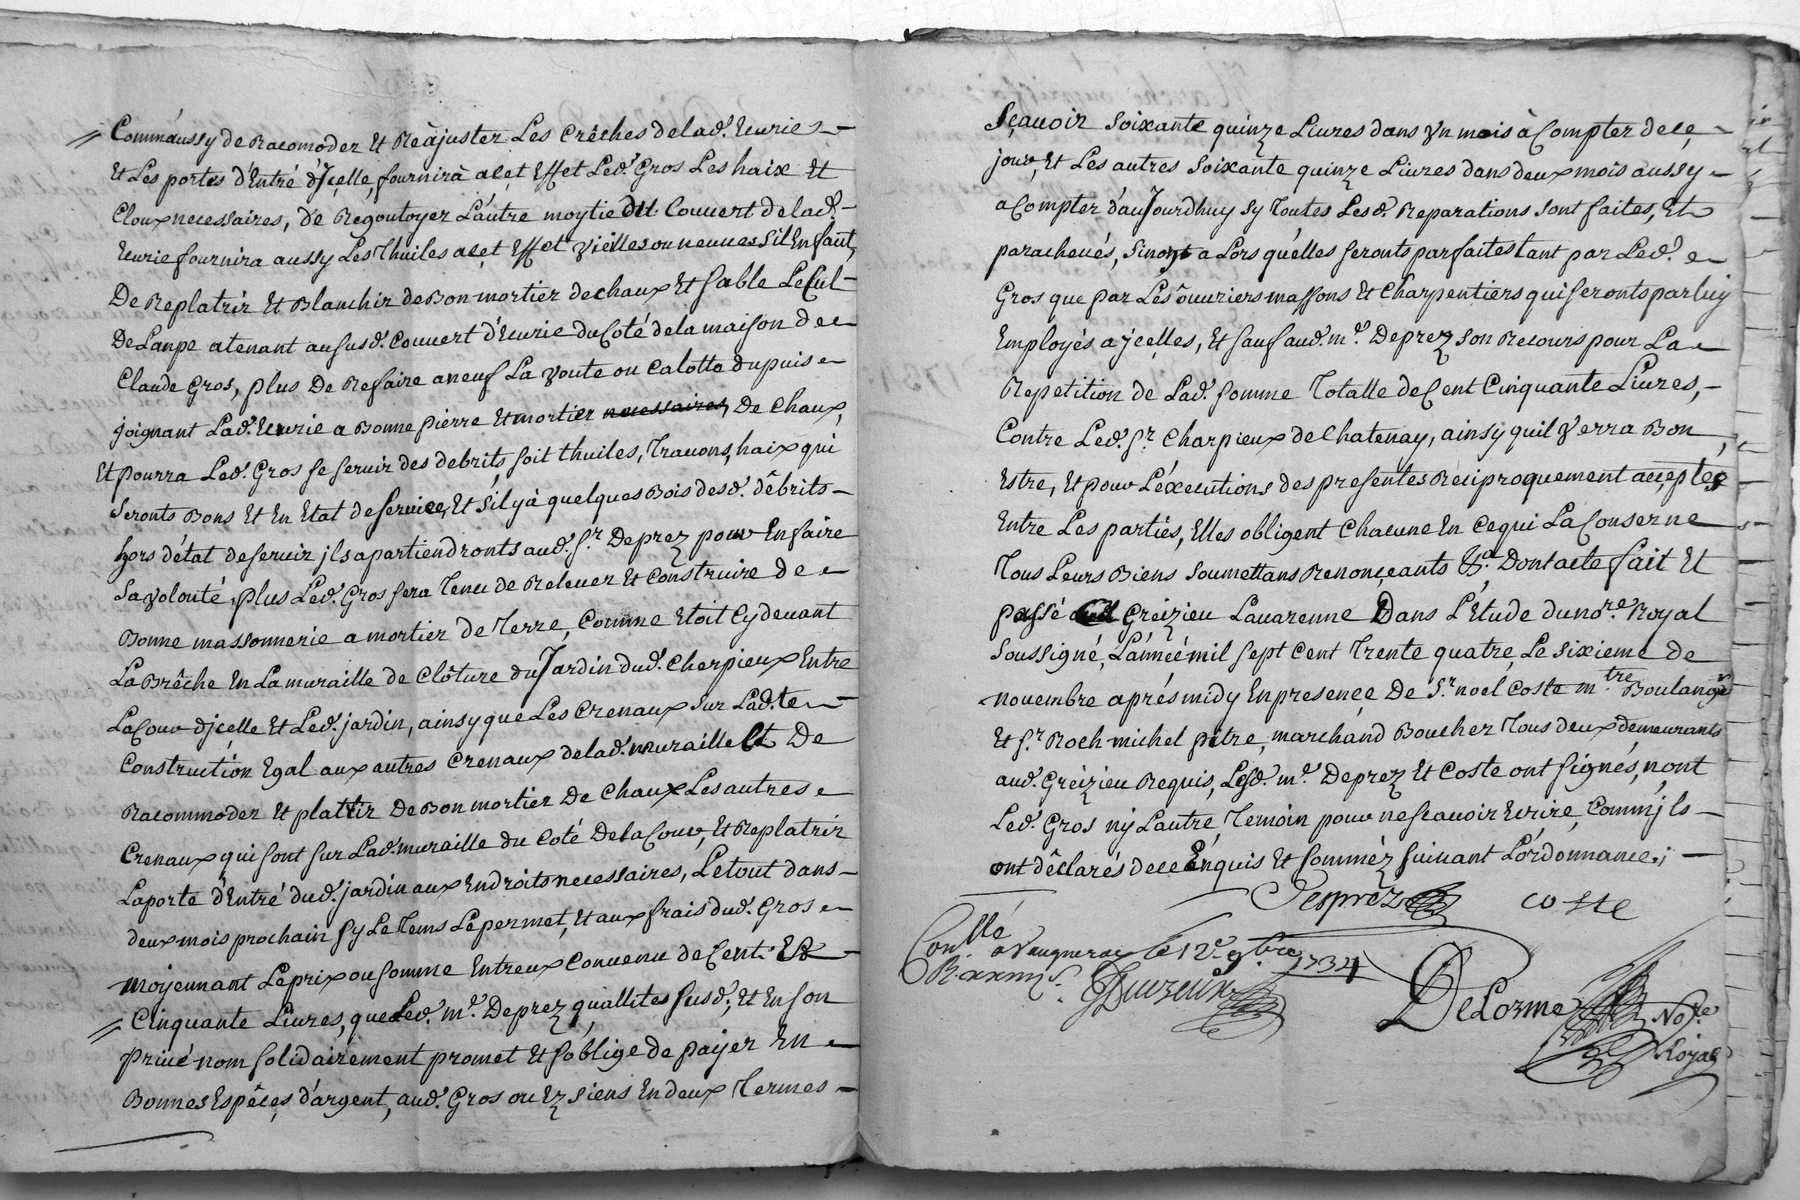 Comm'aussy de Racomoder Et Reàjuster Les Crêches de lad. Ecurie
Et Les portes d'Entré d'Jcelle, fournirà acet Effet Led. Gros Les haix Et
Cloux necessaires, de Regoutoyer L'autre moytie du Couvert de lad.
Ecurie fournira aussy Les Thuiles acet Effet vieilles ou neuves s'il En faut,
De Replatrir Et Blanchir de Bon mortier de chaux Et sable Le Cul
De Lanpe atenant au susd. Couvert d'Ecurie du Coté de la maison de
Claude Gros, plus De Refaire aneuf La voute ou Calotte du puis
joignant Lad. Ecurie a Bonne pierre Et mortier necessaires, De Chaux,
Et pourra Led. Gros se servir des debrits, soit thuiles, Travons, haix qui
seronts Bons Et En Etat de service, Et s'il yà quelques Bois desd. dêbrits
hors d'état de servir jls apartiendronts aud. Sr. Deprez pour En faire
sa volonté, plus Led. Gros sera Tenu de Relever Et Construire de
Bonne massonnerie a mortier de Terre, Comme Etoit Cy devant
La Brêche En La muraille de Clôture du Jardin dud. Charpieux Entre
La Cour d'jcelle Et Led. jardin, ainsy que Les Crenaux sur Lad. te
Construction Egal aux autres Crenaux de lad. muraille Et De
Racommoder Et plattir De Bon mortier De Chaux Les autres
Crenaux qui sont sur Lad. muraille du Coté De la Cour, Et Replatrir
La porte d'Entré dud. jardin aux Endroits necessaires, Le tout dans
deux mois prochain sy Le Tems Le permet, Et aux frais dud. Gros
moyennant Le prix ou somme Entreux Convenu de Cent Et
Cinquante Livres, que Led. me. Deprez quallites susd., Et En son
privé nom solidairement promet Et s'oblige de payer En
Bonnes Espêces d'argent, aud. Gros ou Ez siens En deux Termes
Sçavoir soixante quinze Livres dans vn mois à Compter de ce
jour, Et Les autres soixante quinze Livres dans deux mois aussy
a Compter d'auJourdhuy sy Toutes Lesd. Reparations sont faites, Et
parachevés, sinont a Lors qu'elles seronts parfaites tant par Led.
Gros que par Les ouvriers massons Et Charpentiers qui seronts par luy
Employés a jcelles, Et sauf aud. me. Deprez son Recours pour La
Repetition de Lad. somme Totalle de Cent Cinquante Livres,
Contre Led. Sr. Charpieux de Chatenay, ainsy quil verra Bon
Estre, Et pour L'éxecutions des presentes Reciproquement acceptes
Entre Les partiés, Elles obligent Chacune En Cequi La Conserne
Tous Leurs Biens soumettans Renonçeants &a. Dont acte fait Et
passé Greizieu Lavarenne Dans L'Etude du nore. Royal
soussigné, L'année mil sept Cent Trente quatre, Le sixieme de
novembre aprés midy En presence De Sr. noel Coste mtre. Boulanger
Et Sr. Roch michel pitre, marchand Boucher Tous deux demeurants
aud. Greizieu Requis, Lesd. me. Deprez Et Coste ont signés, n'ont
Led. Gros ny Lautre, Temoin pour ne scavoir Ecrire, Comm'jls
ont déclarés de ce Enquis Et sommez suivant L'ordonnance;
Desprez coste
Conllé a Vaugneray le 12e. 9bre 1734
DeLorme Nore
Royal